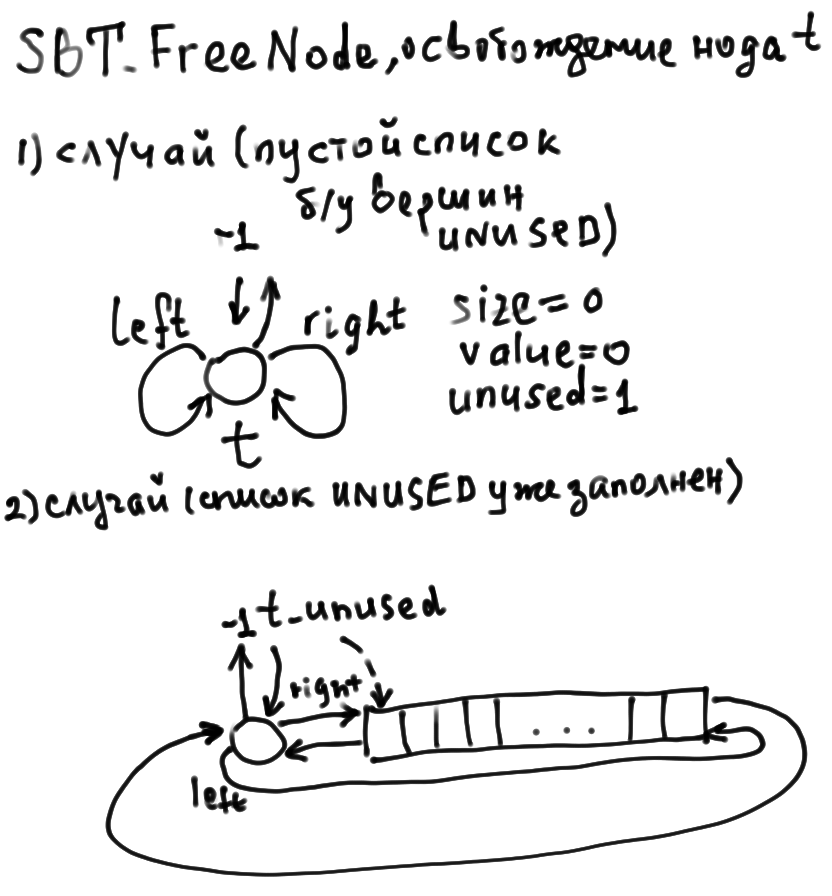 SBT_FreeNode, освобождение нода t
1) случай (пустой список
б/у вершин
UNUSED)
-1
left right size=0
value=0
unused=1
t
2) случай (список UNUSED уже заполнен)
-1 t_unused
right
. . .
left